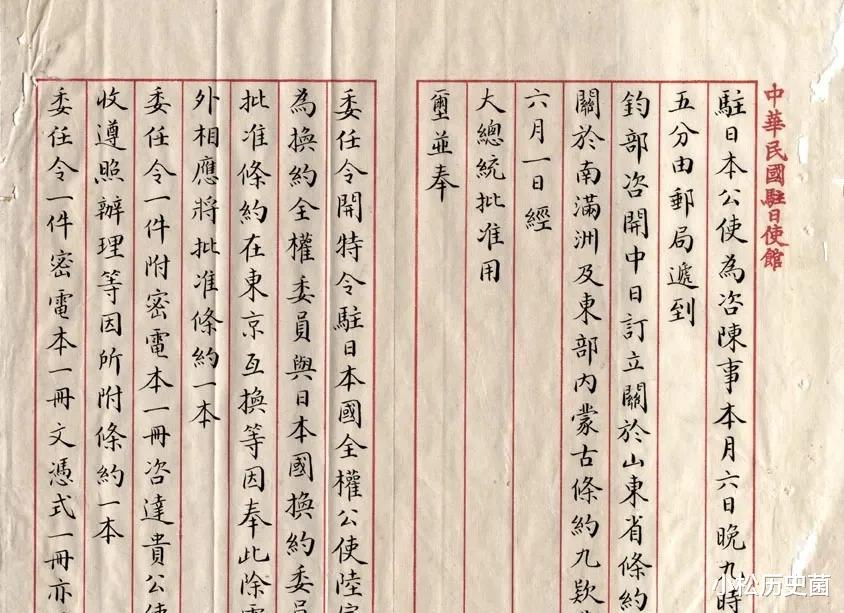 中華民國駐日使館
駐日本公使為咨陳事本月六日晚九時
五分由郵局遞到
鈞部咨開中日訂立關於山東省條約
關於南滿洲及東部內蒙古條約九欵
六月一日經
大總統批准用
璽並奉
委任令開特令駐日本國全權公使陸宗
為換約全權委員與日本國換約委員
批准條約在東京互換等因奉此除電
外相應將批准條約一本
委任令一件附密電本一冊咨達貴公使
收遵照辦理等因所附條約一本
委任令一件密電本一冊文憑式一冊亦
小松历史菌